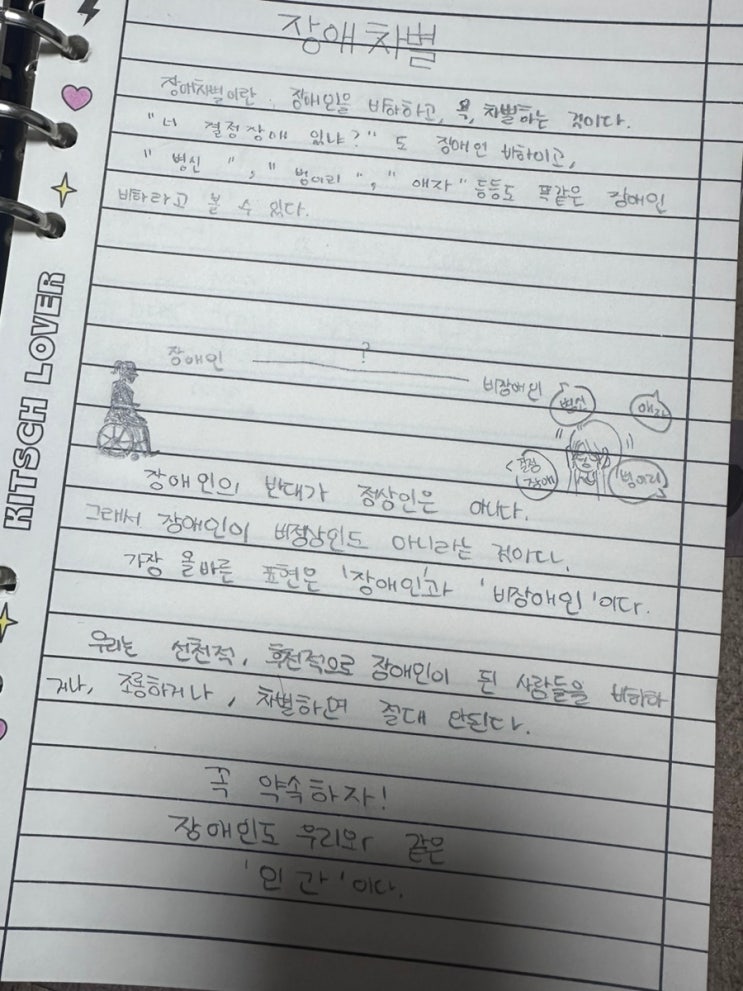 장애차별
장애차별이란, 장애인을 비하하고, 욕, 차별하는 것이다.
"너 결정장애 있냐?"도 장애인 비하이고,
"병신", "벙어리", "애자" 등등도 똑같은 장애인
비하라고 볼 수 있다.
장애인 ? 비장애인
병신 애자
결정장애 벙어리
장애인의 반대가 정상인은 아니다.
그래서 장애인이 비정상인도 아니라는 것이다.
가장 올바른 표현은 '장애인'과 '비장애인'이다.
우리는 선천적, 후천적으로 장애인이 된 사람들을 비하하
거나, 조롱하거나, 차별하면 절대 안된다.
꼭 약속하자!
장애인도 우리와 같은
'인간'이다.
KITSCH LOVER